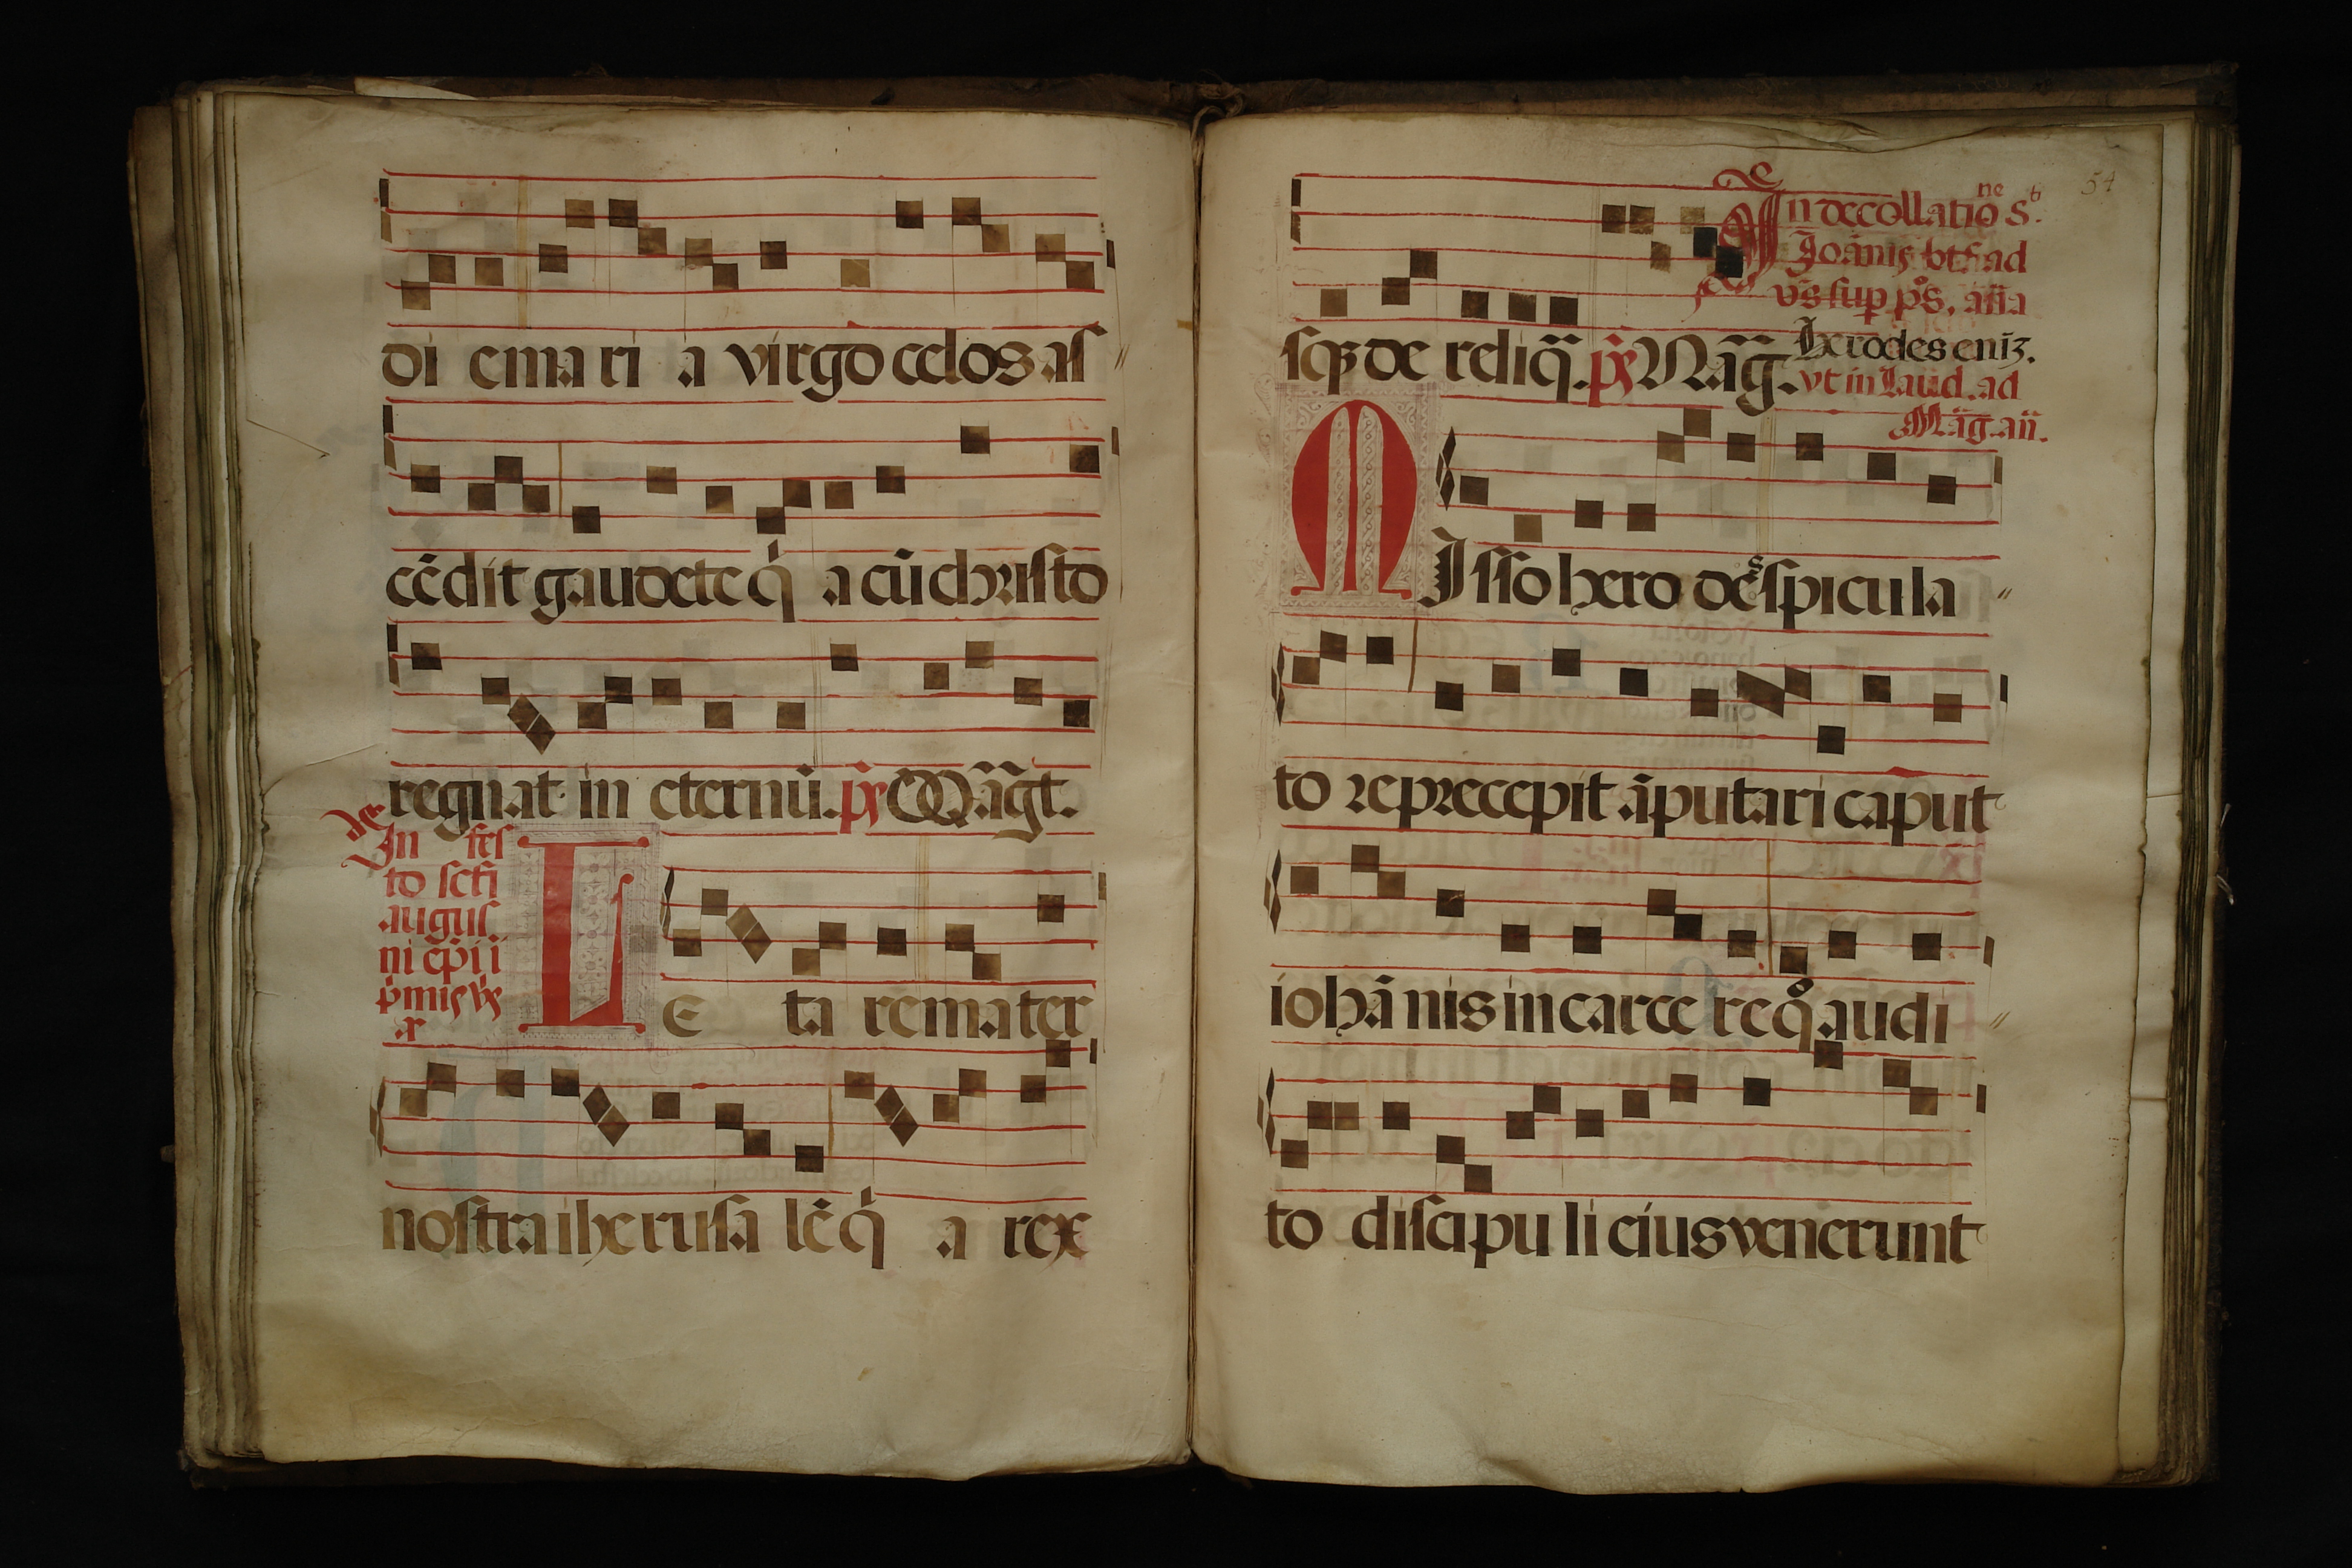 di e mari a virgo celos aſ
cẽdit gaudete q̇ a cũ chriſto
regnat in eternũ. p̃s Mãgt.
In feſ
to scti
auguſ
ni epi i
p̃mis vs
ar
L E ta re mater
noſtra iheruſa lẽ q̇ a rex
54
In decollatione S.
Joãnis bt̃ ad
v̄s ſup p̄s, an̄a
ſq3 de reliq̃. p̃s Mãg. Herodes eni3.
vt in laud. ad
Mãg. añ.
M Iſſo hero des ſpicula
to re precepit ãputari caput
iohã nis in carce re qͦ audi
to diſcipu li eius venerunt